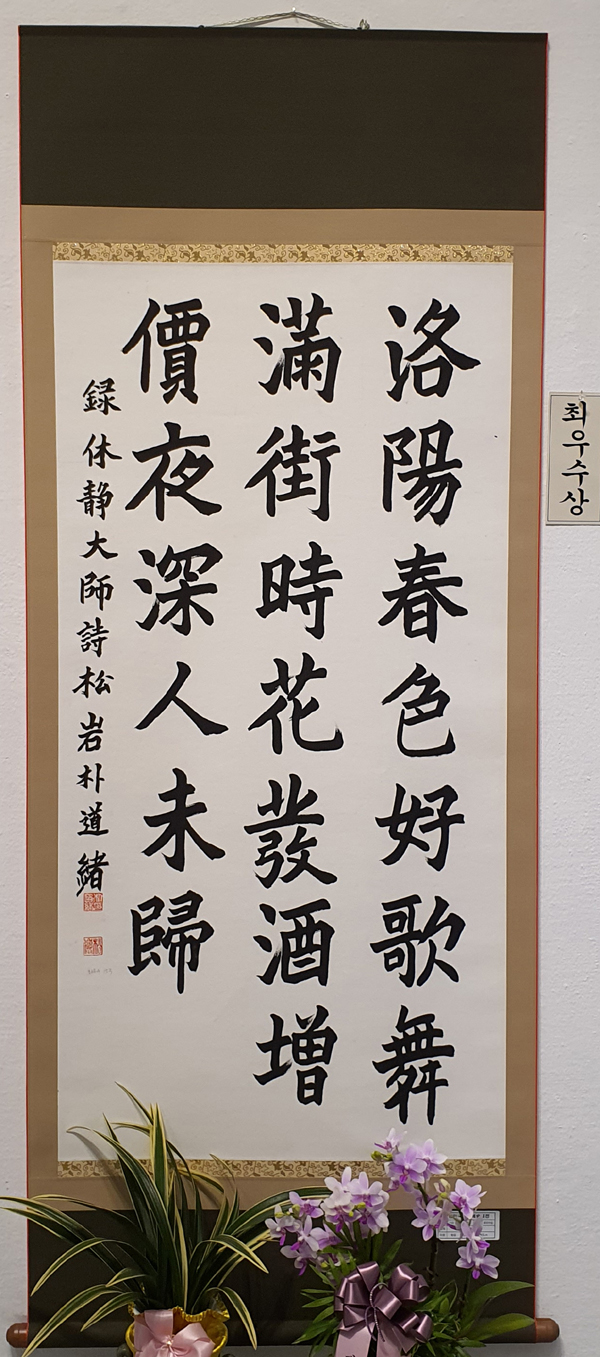 洛陽春色好歌舞
滿街時花發酒増
價夜深人未歸
録休静大師詩松岩朴道緒
최우수상